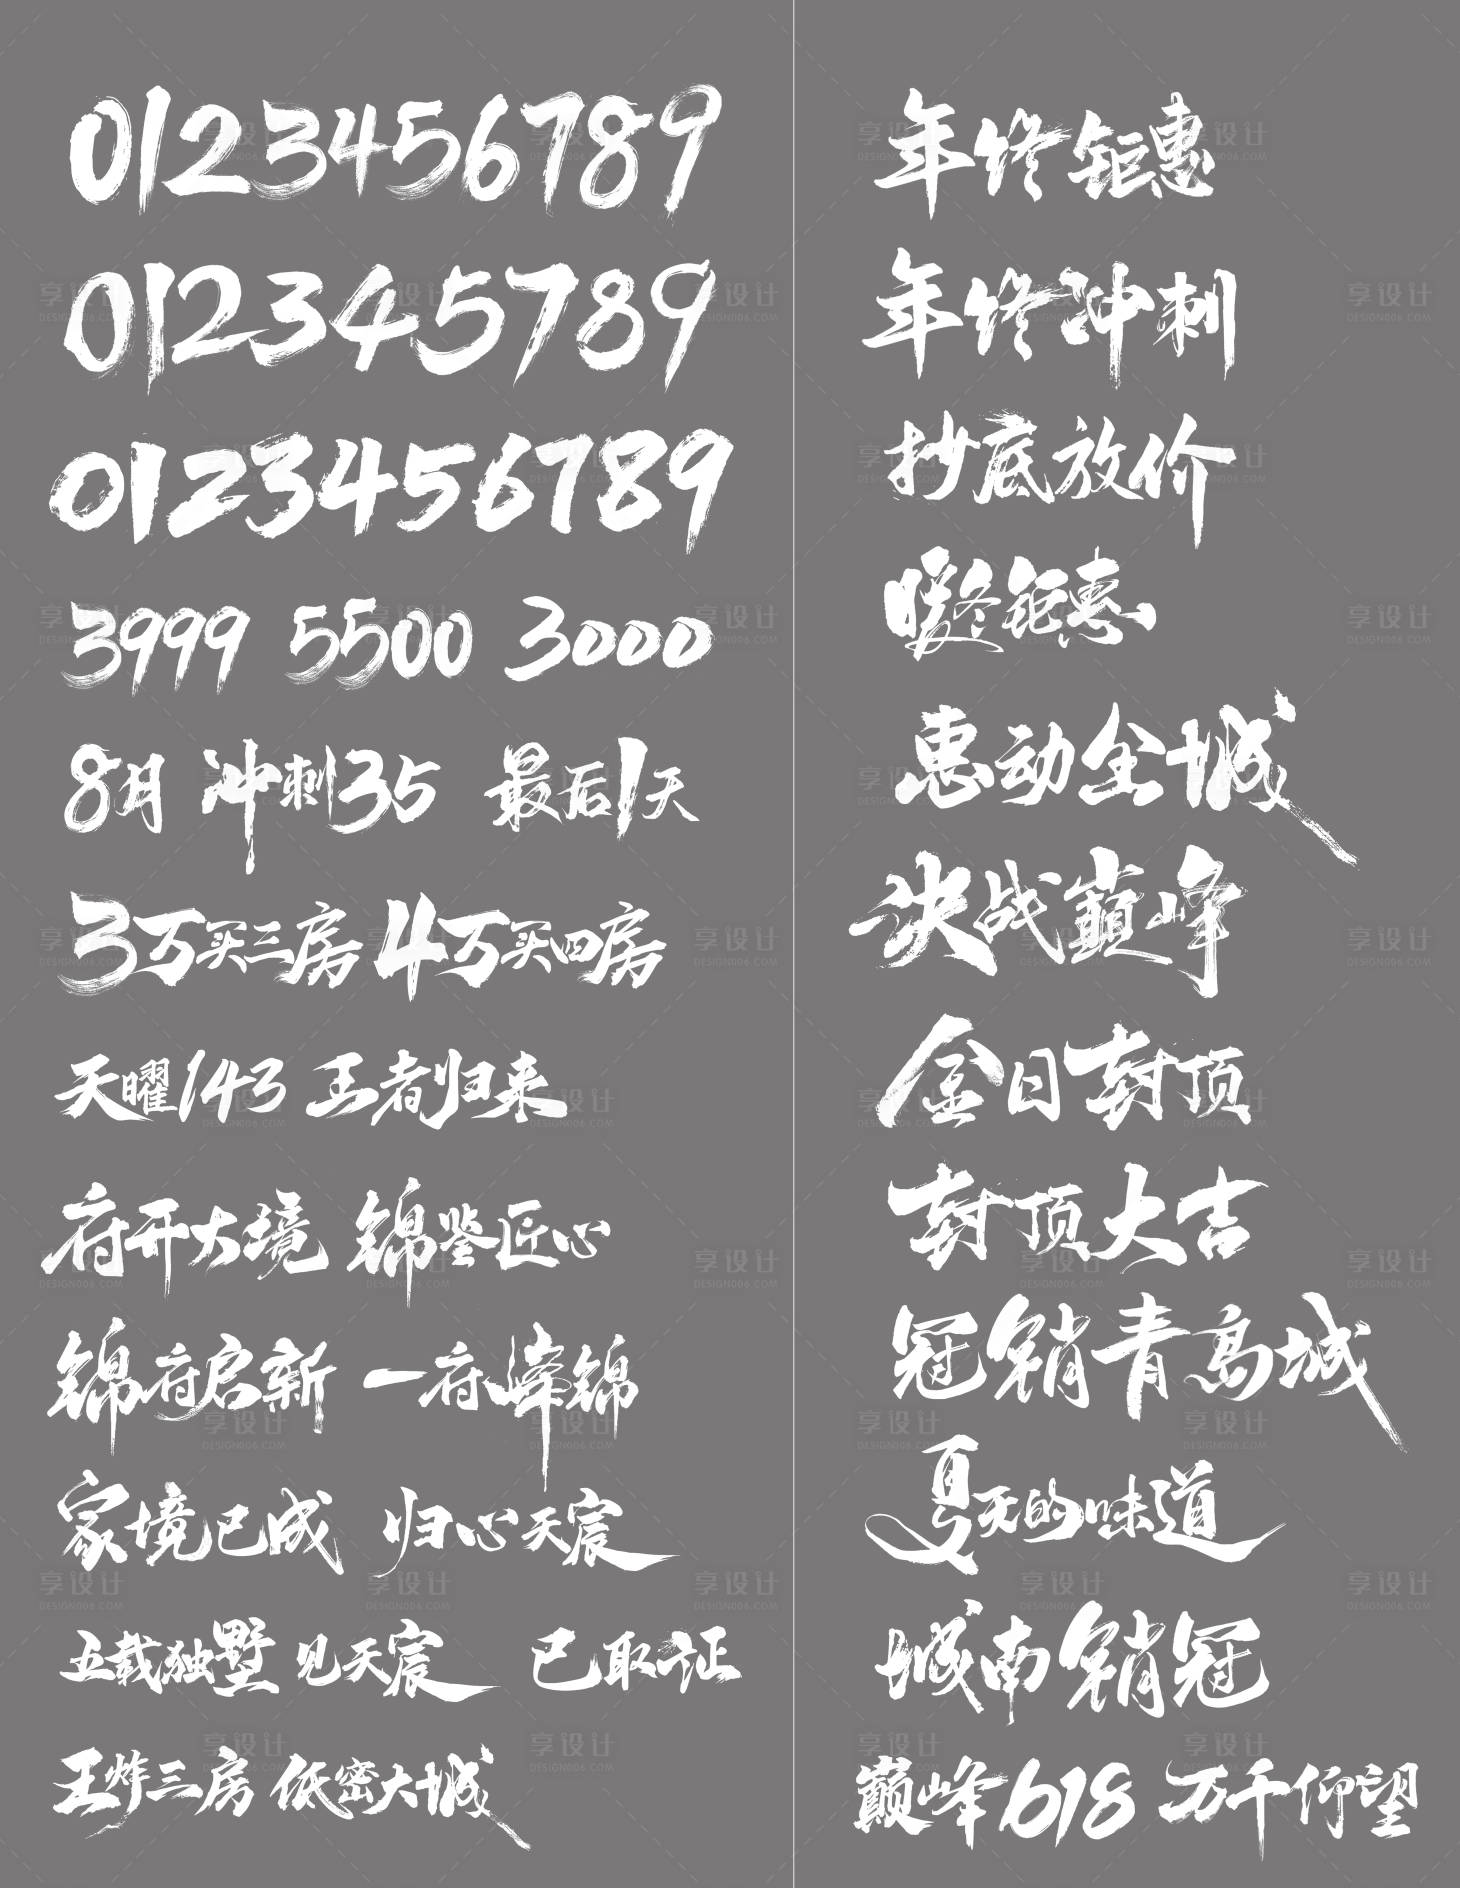 0123456789
012345789
0123456789
3999 5500 3000
8月 冲刺35 最后1天
3万买三房 4万买四房
天曜143 王者归来
府开大境 锦鉴匠心
锦府启新 一府峰锦
家境已成 归心天宸
五载独墅 见天宸 已取证
王炸三房 低密大城
年终钜惠
年终冲刺
抄底放价
暖冬钜惠
惠动全城
决战巅峰
金日封顶
封顶大吉
冠销青岛城
夏天的味道
城南销冠
巅峰618 万千仰望
享设计
DESIGN006.COM